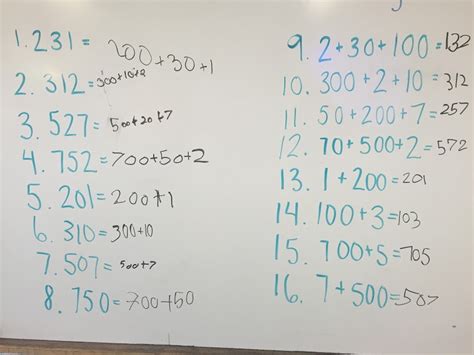 1. 231 = 200 + 30 + 1
2. 312 = 300 + 10 + 2
3. 527 = 500 + 20 + 7
4. 752 = 700 + 50 + 2
5. 201 = 200 + 1
6. 310 = 300 + 10
7. 507 = 500 + 7
8. 750 = 700 + 50
9. 2 + 30 + 100 = 132
10. 300 + 2 + 10 = 312
11. 50 + 200 + 7 = 257
12. 70 + 500 + 2 = 572
13. 1 + 200 = 201
14. 100 + 3 = 103
15. 700 + 5 = 705
16. 7 + 500 = 507